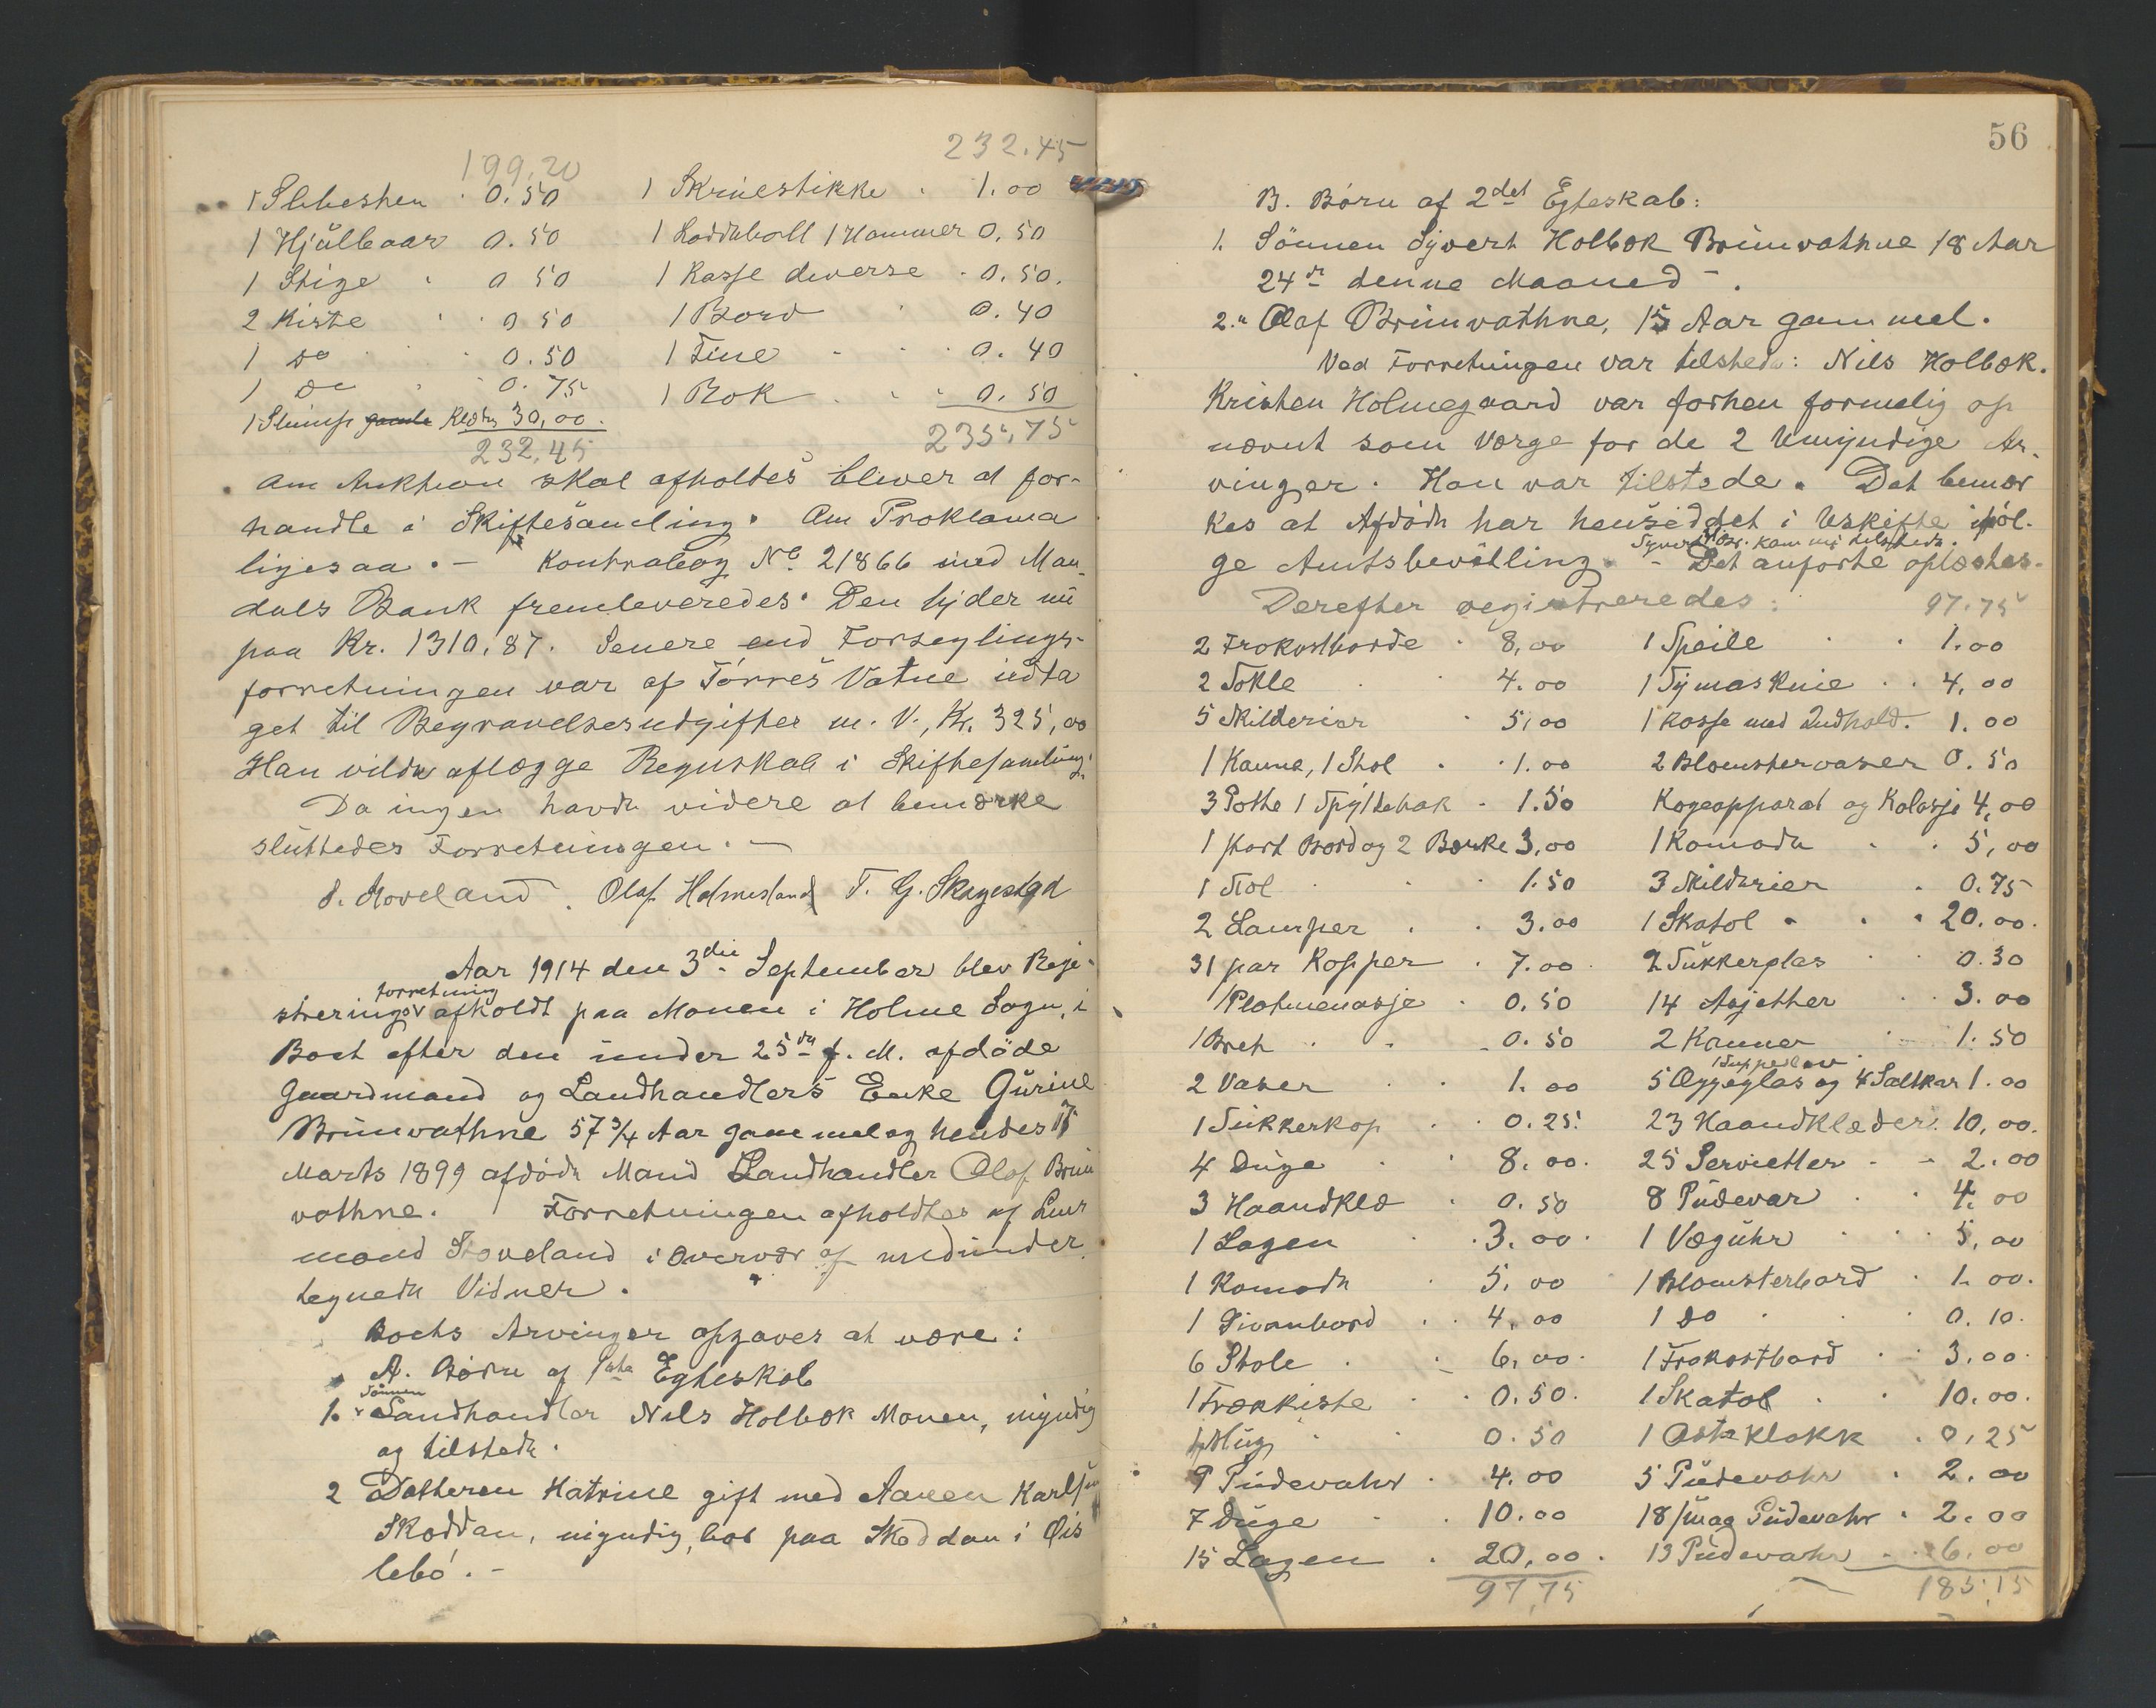 199.20
232.45
1 Slibesten 0.50
1 Hjülbaar 0.50
1 Stige 0 50
2 Kiste 0 50
1 do 0.50
1 do 0.75
1 Slump gamle Klæder 30,00.
232,45
1 Skruestikke 1.00
1 Loddebolt 1 Hammer 0.50
1 Kasse diverse 0.50.
1 Bord 0.40
1 Tine 0.40
1 Rok 0.50
235,75
Om Auktion skal afholdes bliver at for-
handle i Skiftesamling. Om Proklama
ligesaa. – Kontrabog No. 21866 med Man-
dals Bank fremleveredes. Den lyder nu
paa Kr. 1310,87. Senere end Forseglings-
forretningen var af Törres Vatne udta
get til Begravelsesudgifter m. V., Kr. 325,00
Han vilde aflægge Regnskab i Skiftesamling.
Da ingen havde videre at bemærke
sluttedes Forretningen. –
S. Stoveland. Olaf Holmesland T. G. Skagestad
Aar 1914 den 3die September blev Regi-
strerings forretning afholdt paa Monen i Holme Sogn, i
Boet efter den under 25de f. M. afdöde
Gaardmand og Landhandlers Enke Gurine
Brunvathne 57 3/4 Aar gammel og hendes 17
Marts 1899 afdöde Mand Landhandler Olaf Brun
vathne. Forretningen afholdtes af Lens
mand Stoveland i Overvær af medunder
tegnede Vidner.
Boets Arvinger opgaves at være:
A. Börn af 1ste Egteskab
1. Sönnen Landhandler Nils Holbæk Monen, myndig
og tilstede.
2 Datteren Katrine gift med Aanen Karlsen
Skoddan, myndig, bor paa Skoddan i Øis
lebö. –
56
B. Börn af 2det Egteskab:
1. Sönnen Syvert Holbæk Brunvathne 18 Aar
24de denne Maaned.
2. " Olaf Brunvathne, 15 Aar gammel.
Ved Forretningen var tilstede: Nils Holbæk.
Kristen Holmegaard var forhen formelig op
nævnt som Værge for de 2 Umyndige Ar-
vinger. Han var tilstede. Det bemær
kes at Afdöde har hensiddet i Uskifte iföl-
ge Amtsbevilling. – Syvert Br. kom nu tilstede. Det anförte oplæstes.
Derefter registreredes:
97.75
2 Frokostborde 8,00
2 Sokle 4.00
5 Skilderier 5,00
1 Kanne, 1 Stol 1.00
3 Potte 1 Spyttebak 1.50
1 stort Bord og 2 Bænke 3,00
1 Stol 1.50
2 Lamper 3.00
31 par Kopper 7.00
1 Platmenasje 0.50
1 Bret 0.50
2 Vaser 1.00
1 Sukkerkop 0.25
4 Duge 8.00
3 Haandklæ 0.50
1 Lagen 3.00
1 Komode 5.00
1 Divanbord 4.00
6 Stole 6,00
1 Trækiste 0.50
1 Mug 0.50
9 Pudevahr 4.00
7 Duge 10.00
15 Lagen 20,00
97,75
1 Speile 1.00
1 Symaskine 4,00
1 Kasse med Indhold. 1.00
2 Blomstervaser 0.50
Kogeapparat og Kolasje 4,00
1 Komode 5,00
3 Skilderier 0.75
1 Skatol 20.00.
2 Sukkerglas 0.30
14 Asjetter 3.00
2 Kanner 1.50
5 Æggeglas og 4 Saltkar 1.00
23 Haandklæder 10,00.
25 Servietter 2.00
8 Pudevar 4.00
1 Væguhr 5,00
1 Blomsterbord 1.00.
1 do 0.10
1 Frokostbord 3.00
1 Skatol 10.00.
1 Osteklokke 0,25
5 Pudevahr 2.00
18 smaa Pudevahr 2.00
13 Pudevahr 6.00
185,15